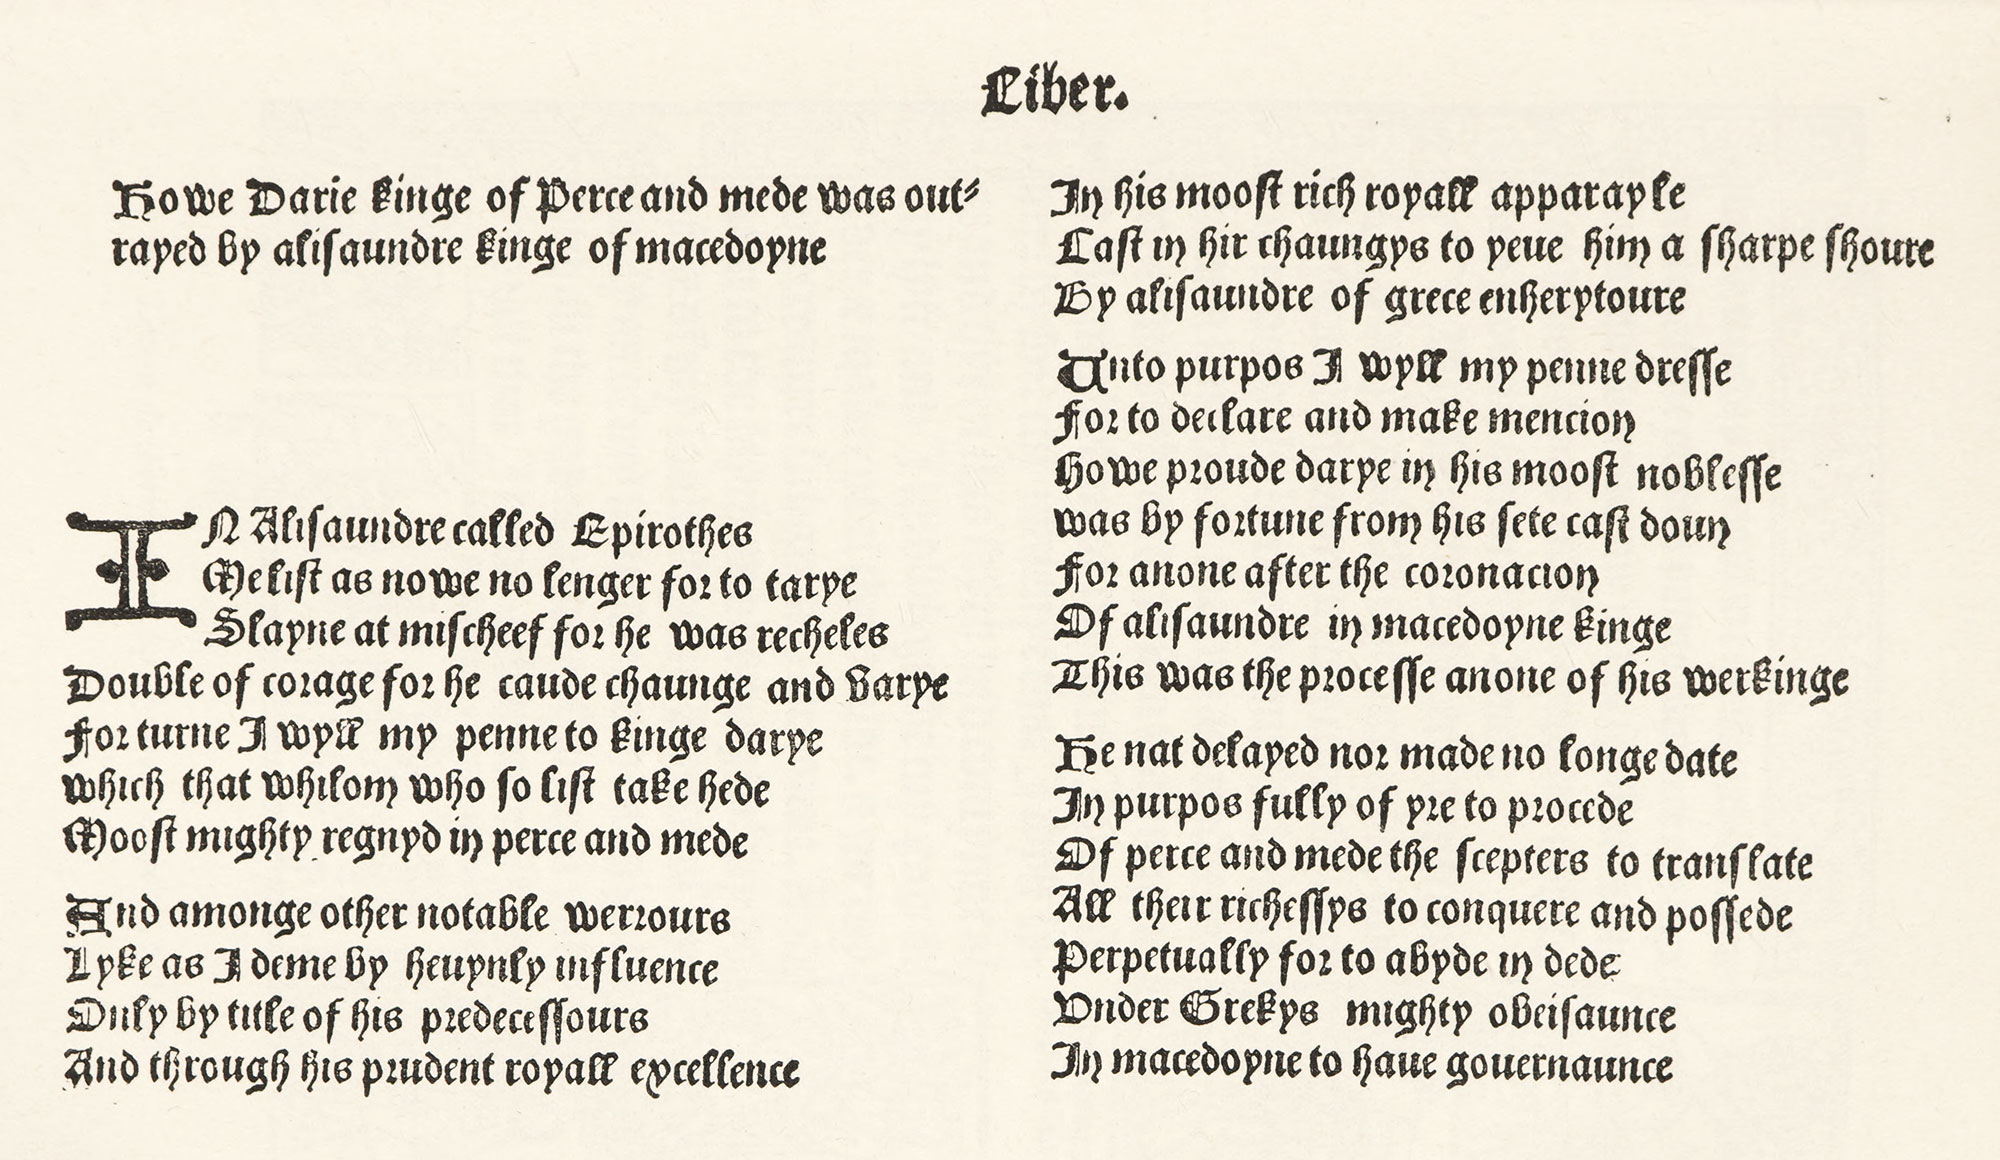 Liber.
Howe Darie kinge of Perce and mede was out-
rayed by alisaundre kinge of macedoyne
IN Alisaundre called Epirothes
Me list as nowe no lenger for to tarye
Slayne at mischeef for he was recheles
Double of corage for he caude chaunge and varye
For turne I wyll my penne to kinge darye
which that whilom who so list take hede
Moost mighty regnyd in perce and mede
And amonge other notable werrours
Lyke as I deme by heuynly influence
Only by title of his predecessours
And through his prudent royall excellence
In his moost rich royall apparayle
Cast in hir chaungys to yeue him a sharpe shoure
By alisaundre of grece enherytoure
Unto purpos I wyll my penne dresse
For to declare and make mencion
Howe proude darye in his moost noblesse
was by fortune from his sete cast doun
For anone after the coronacion
Of alisaundre in macedoyne kinge
This was the processe anone of his werkinge
He nat delayed nor made no longe date
In purpos fully of yre to procede
Of perce and mede the scepters to translate
All their richessys to conquere and possede
Perpetually for to abyde in dede
Vnder Grekys mighty obeisaunce
In macedoyne to haue gouernaunce